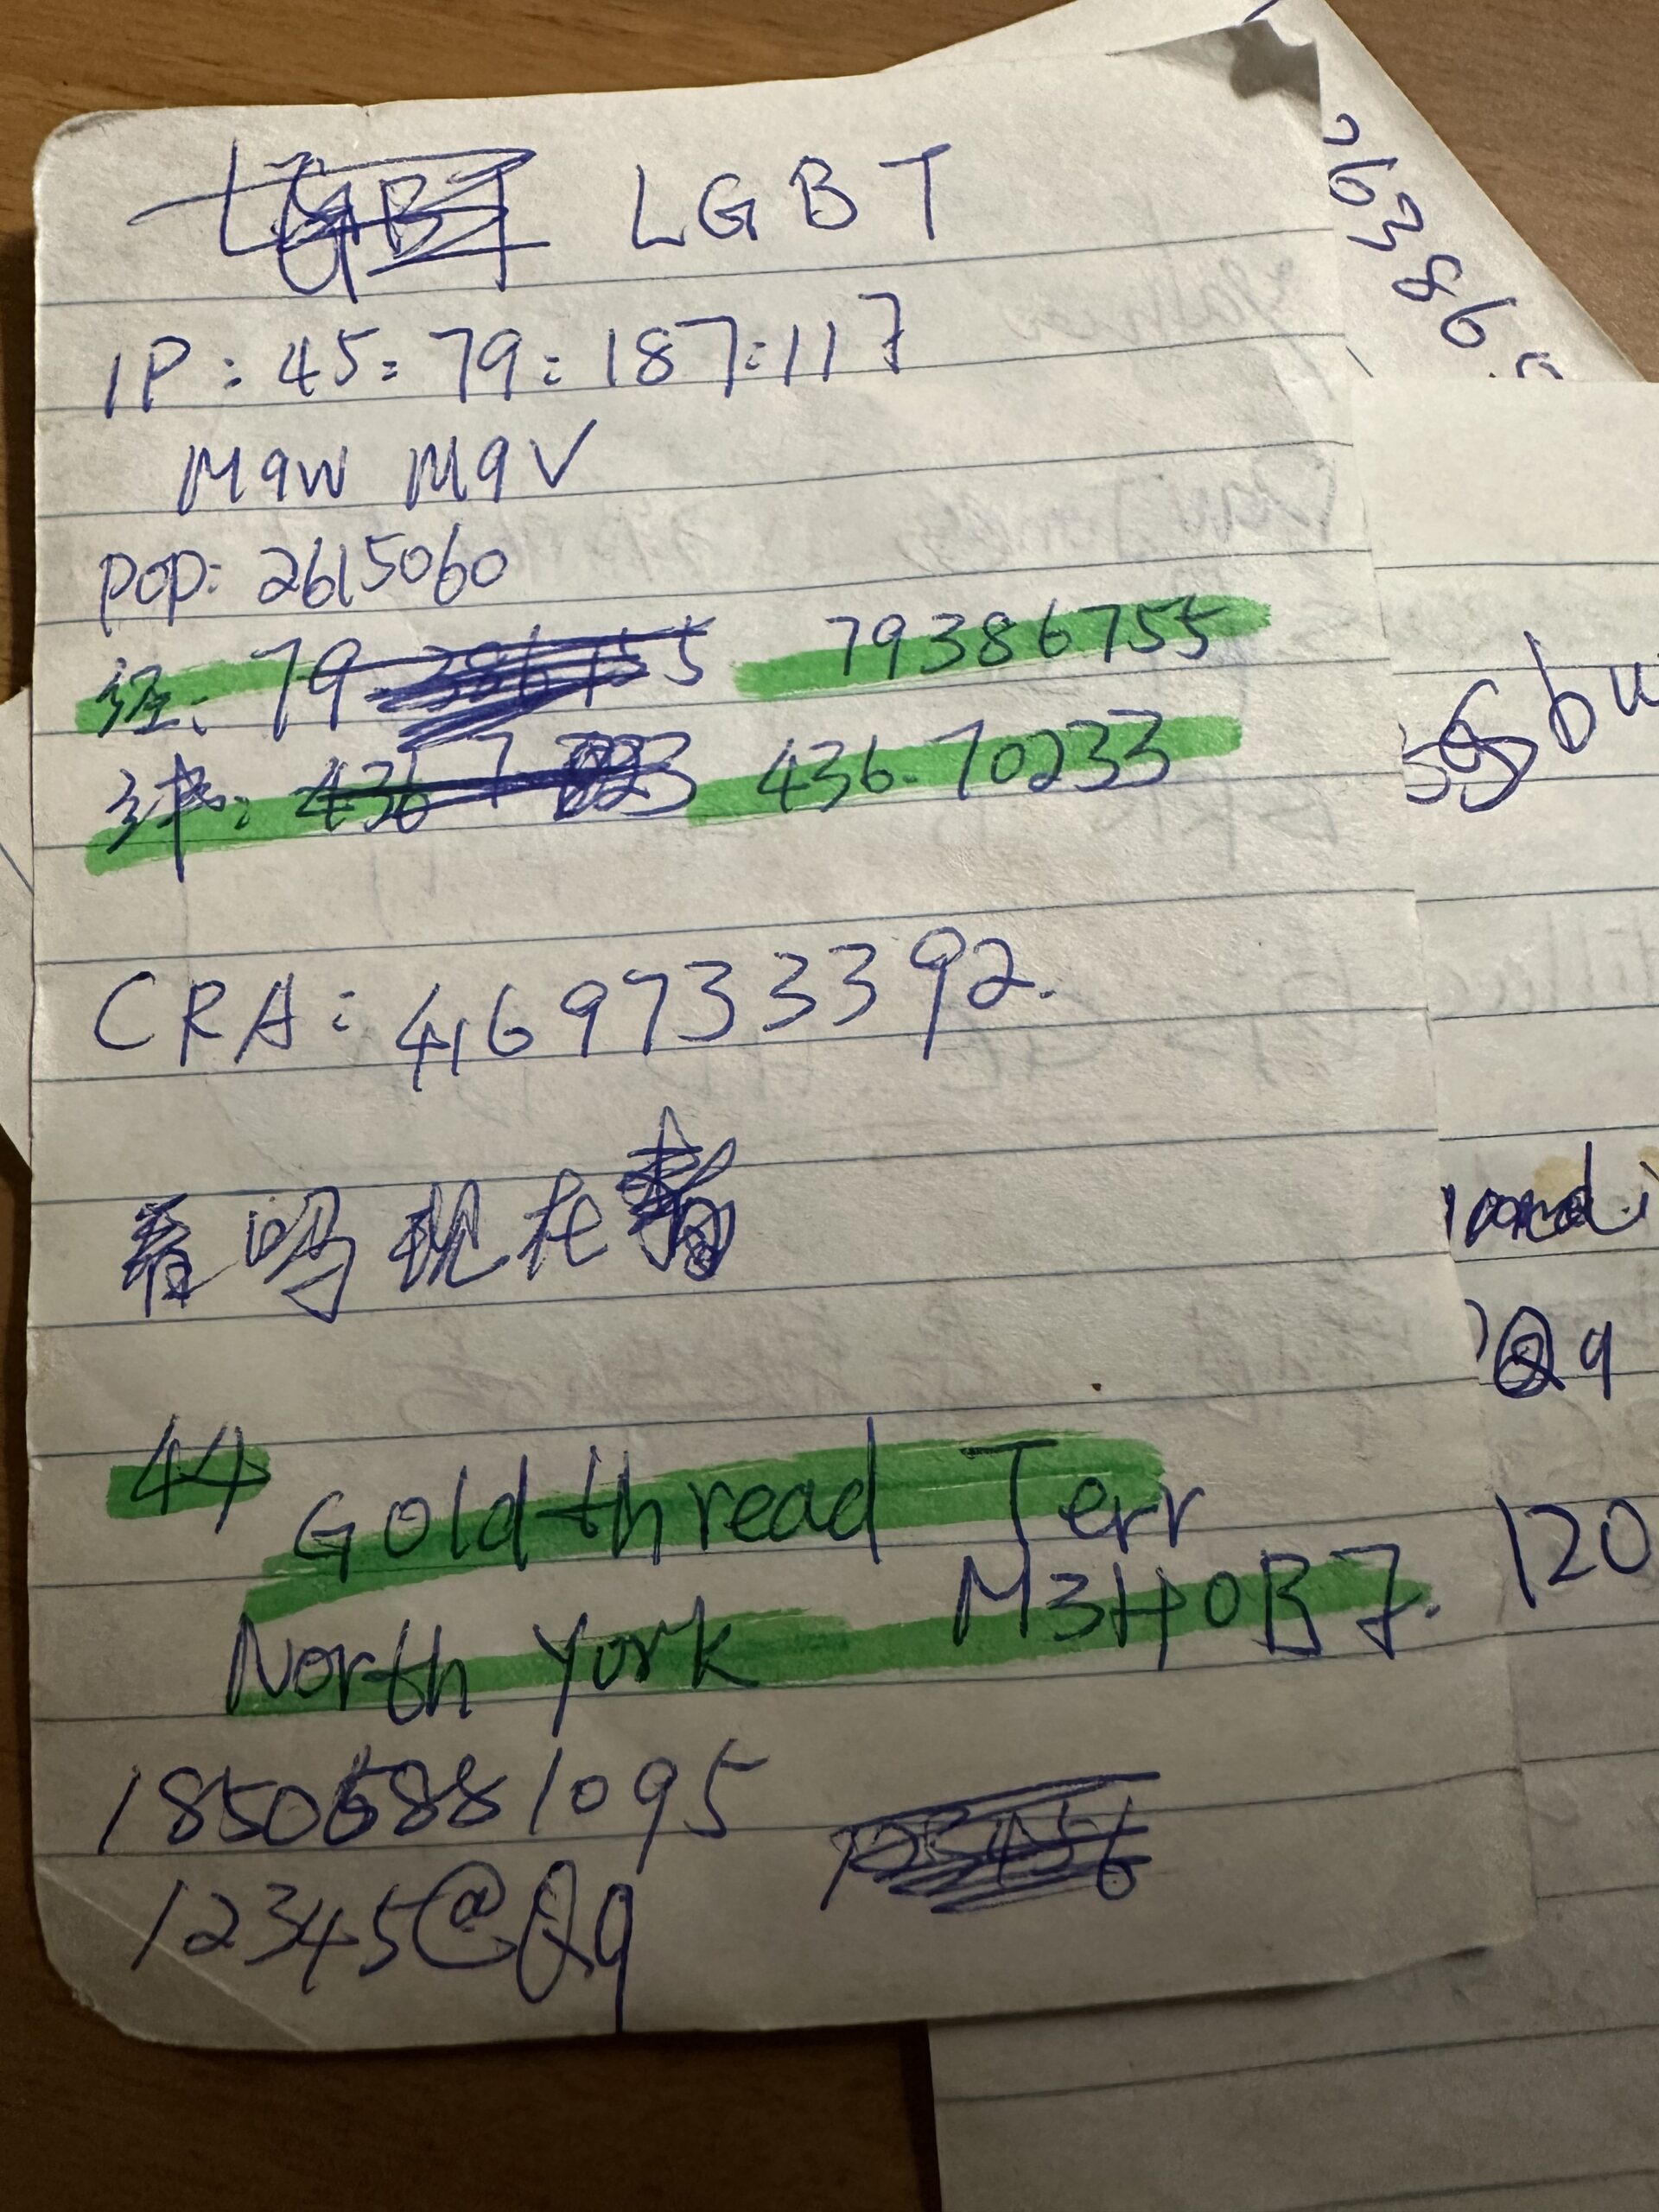 LGBT LGBT
IP: 45:79:187:117
M9W M9V
pop: 2615060
经: 79 79386755
纬: 436 436.70233
CRA: 4169733392.
看吗现在
44 Goldthread Terr
North York M3H0B7.
18506881095
12345@Qq
26386
bu
Qq
120